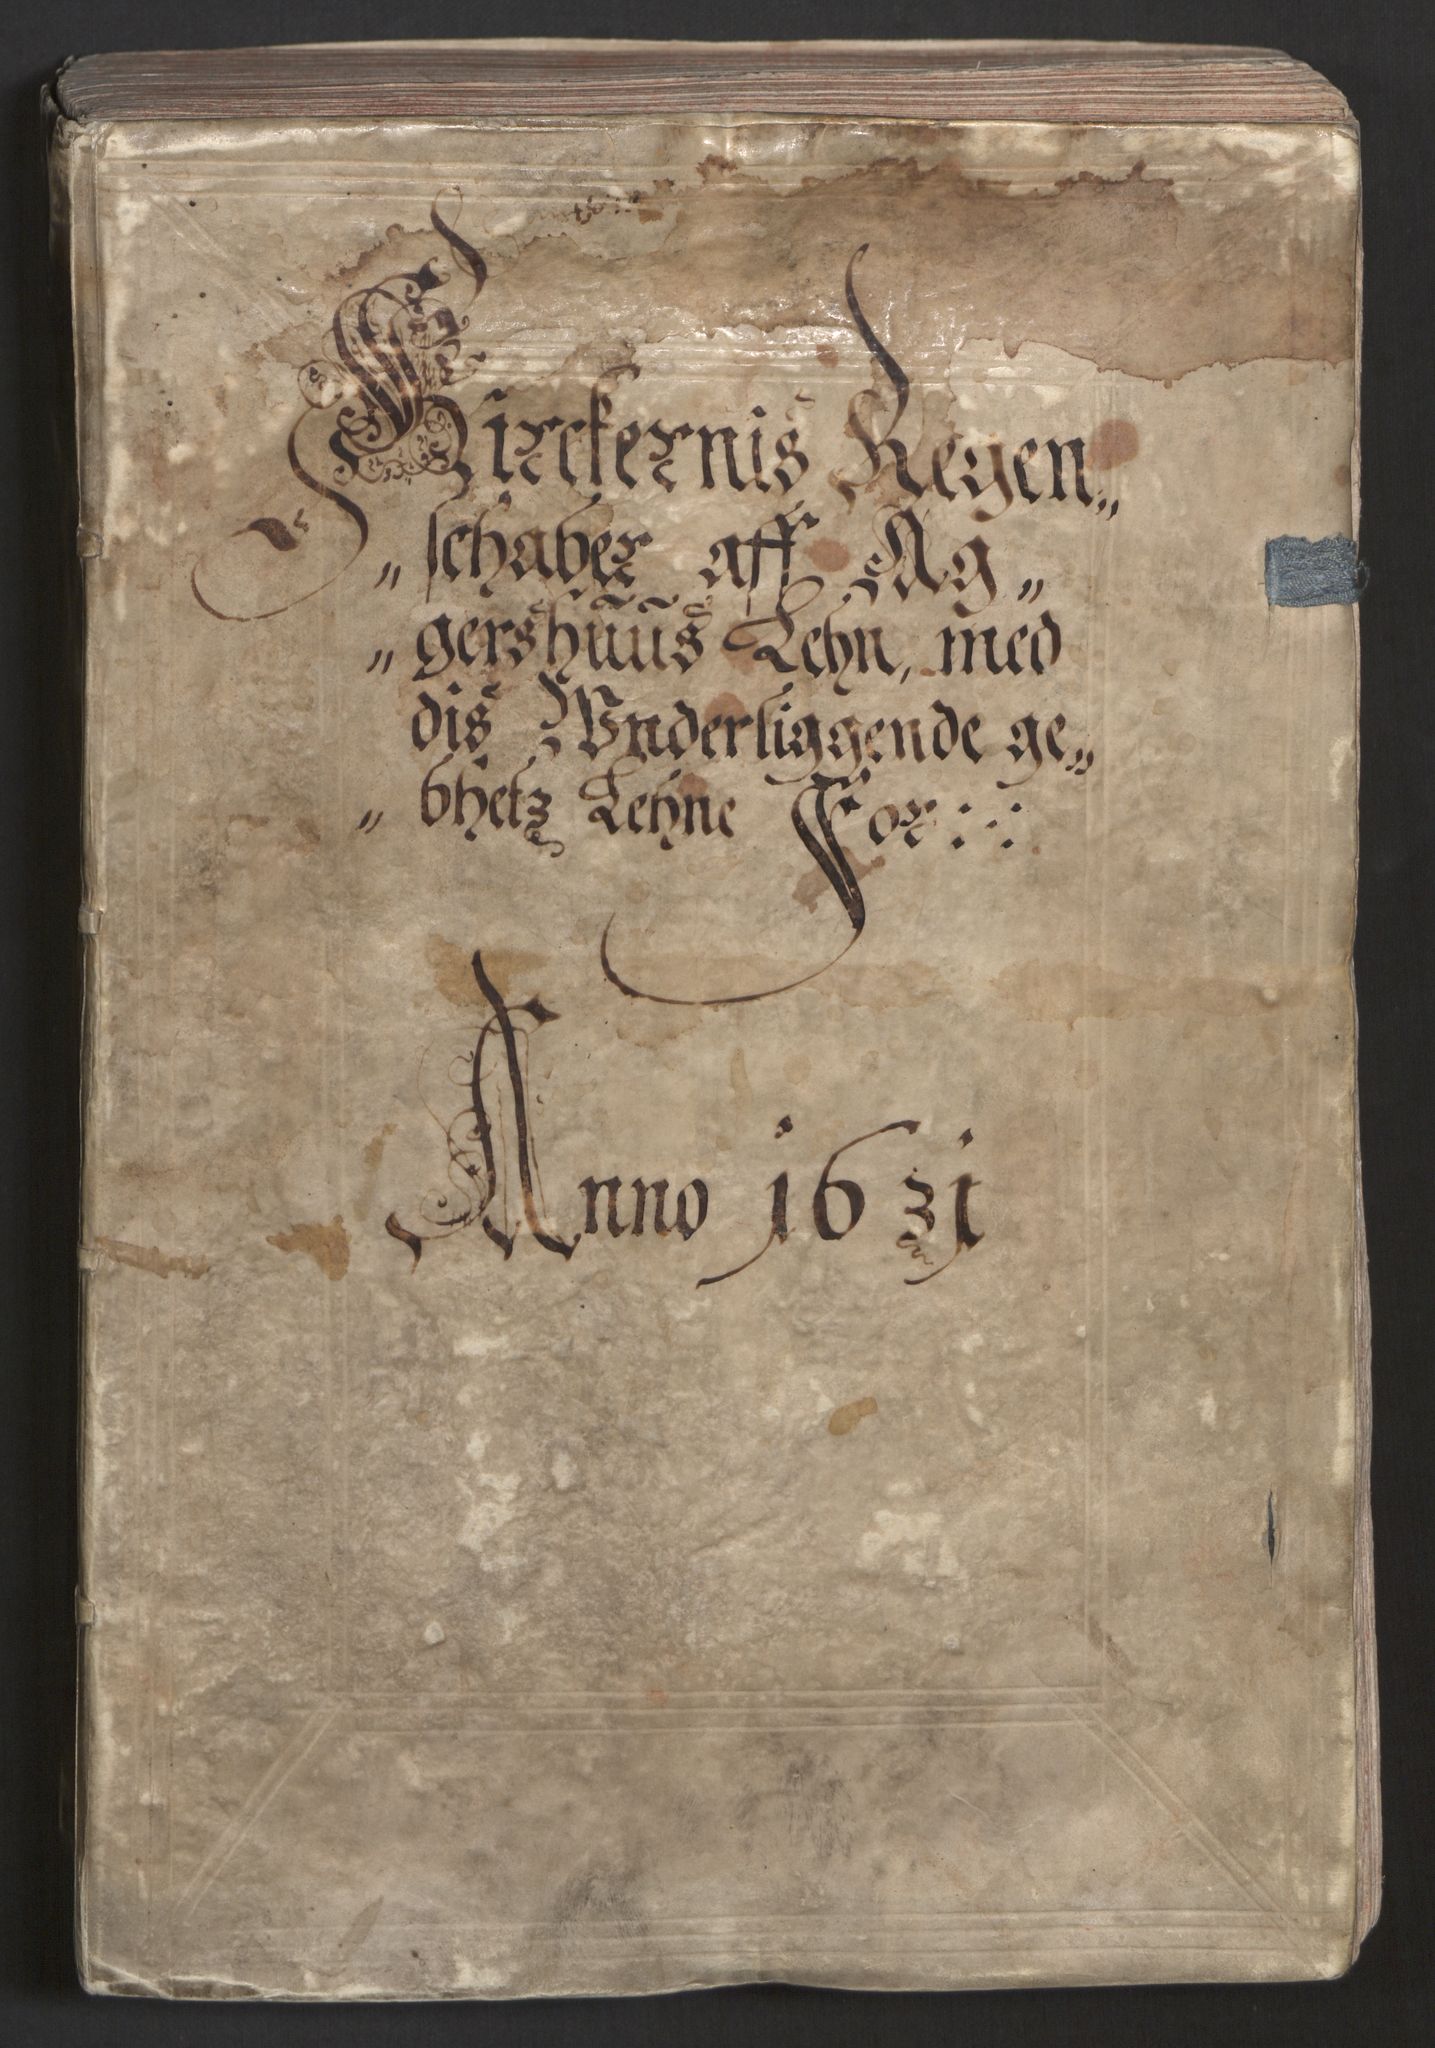 Kirckernis Regen„
„schaber aff Ag„
„gershuus Lehn, med
dis Vnderliggende ge„
„bhetz Lehne For
Anno 1631